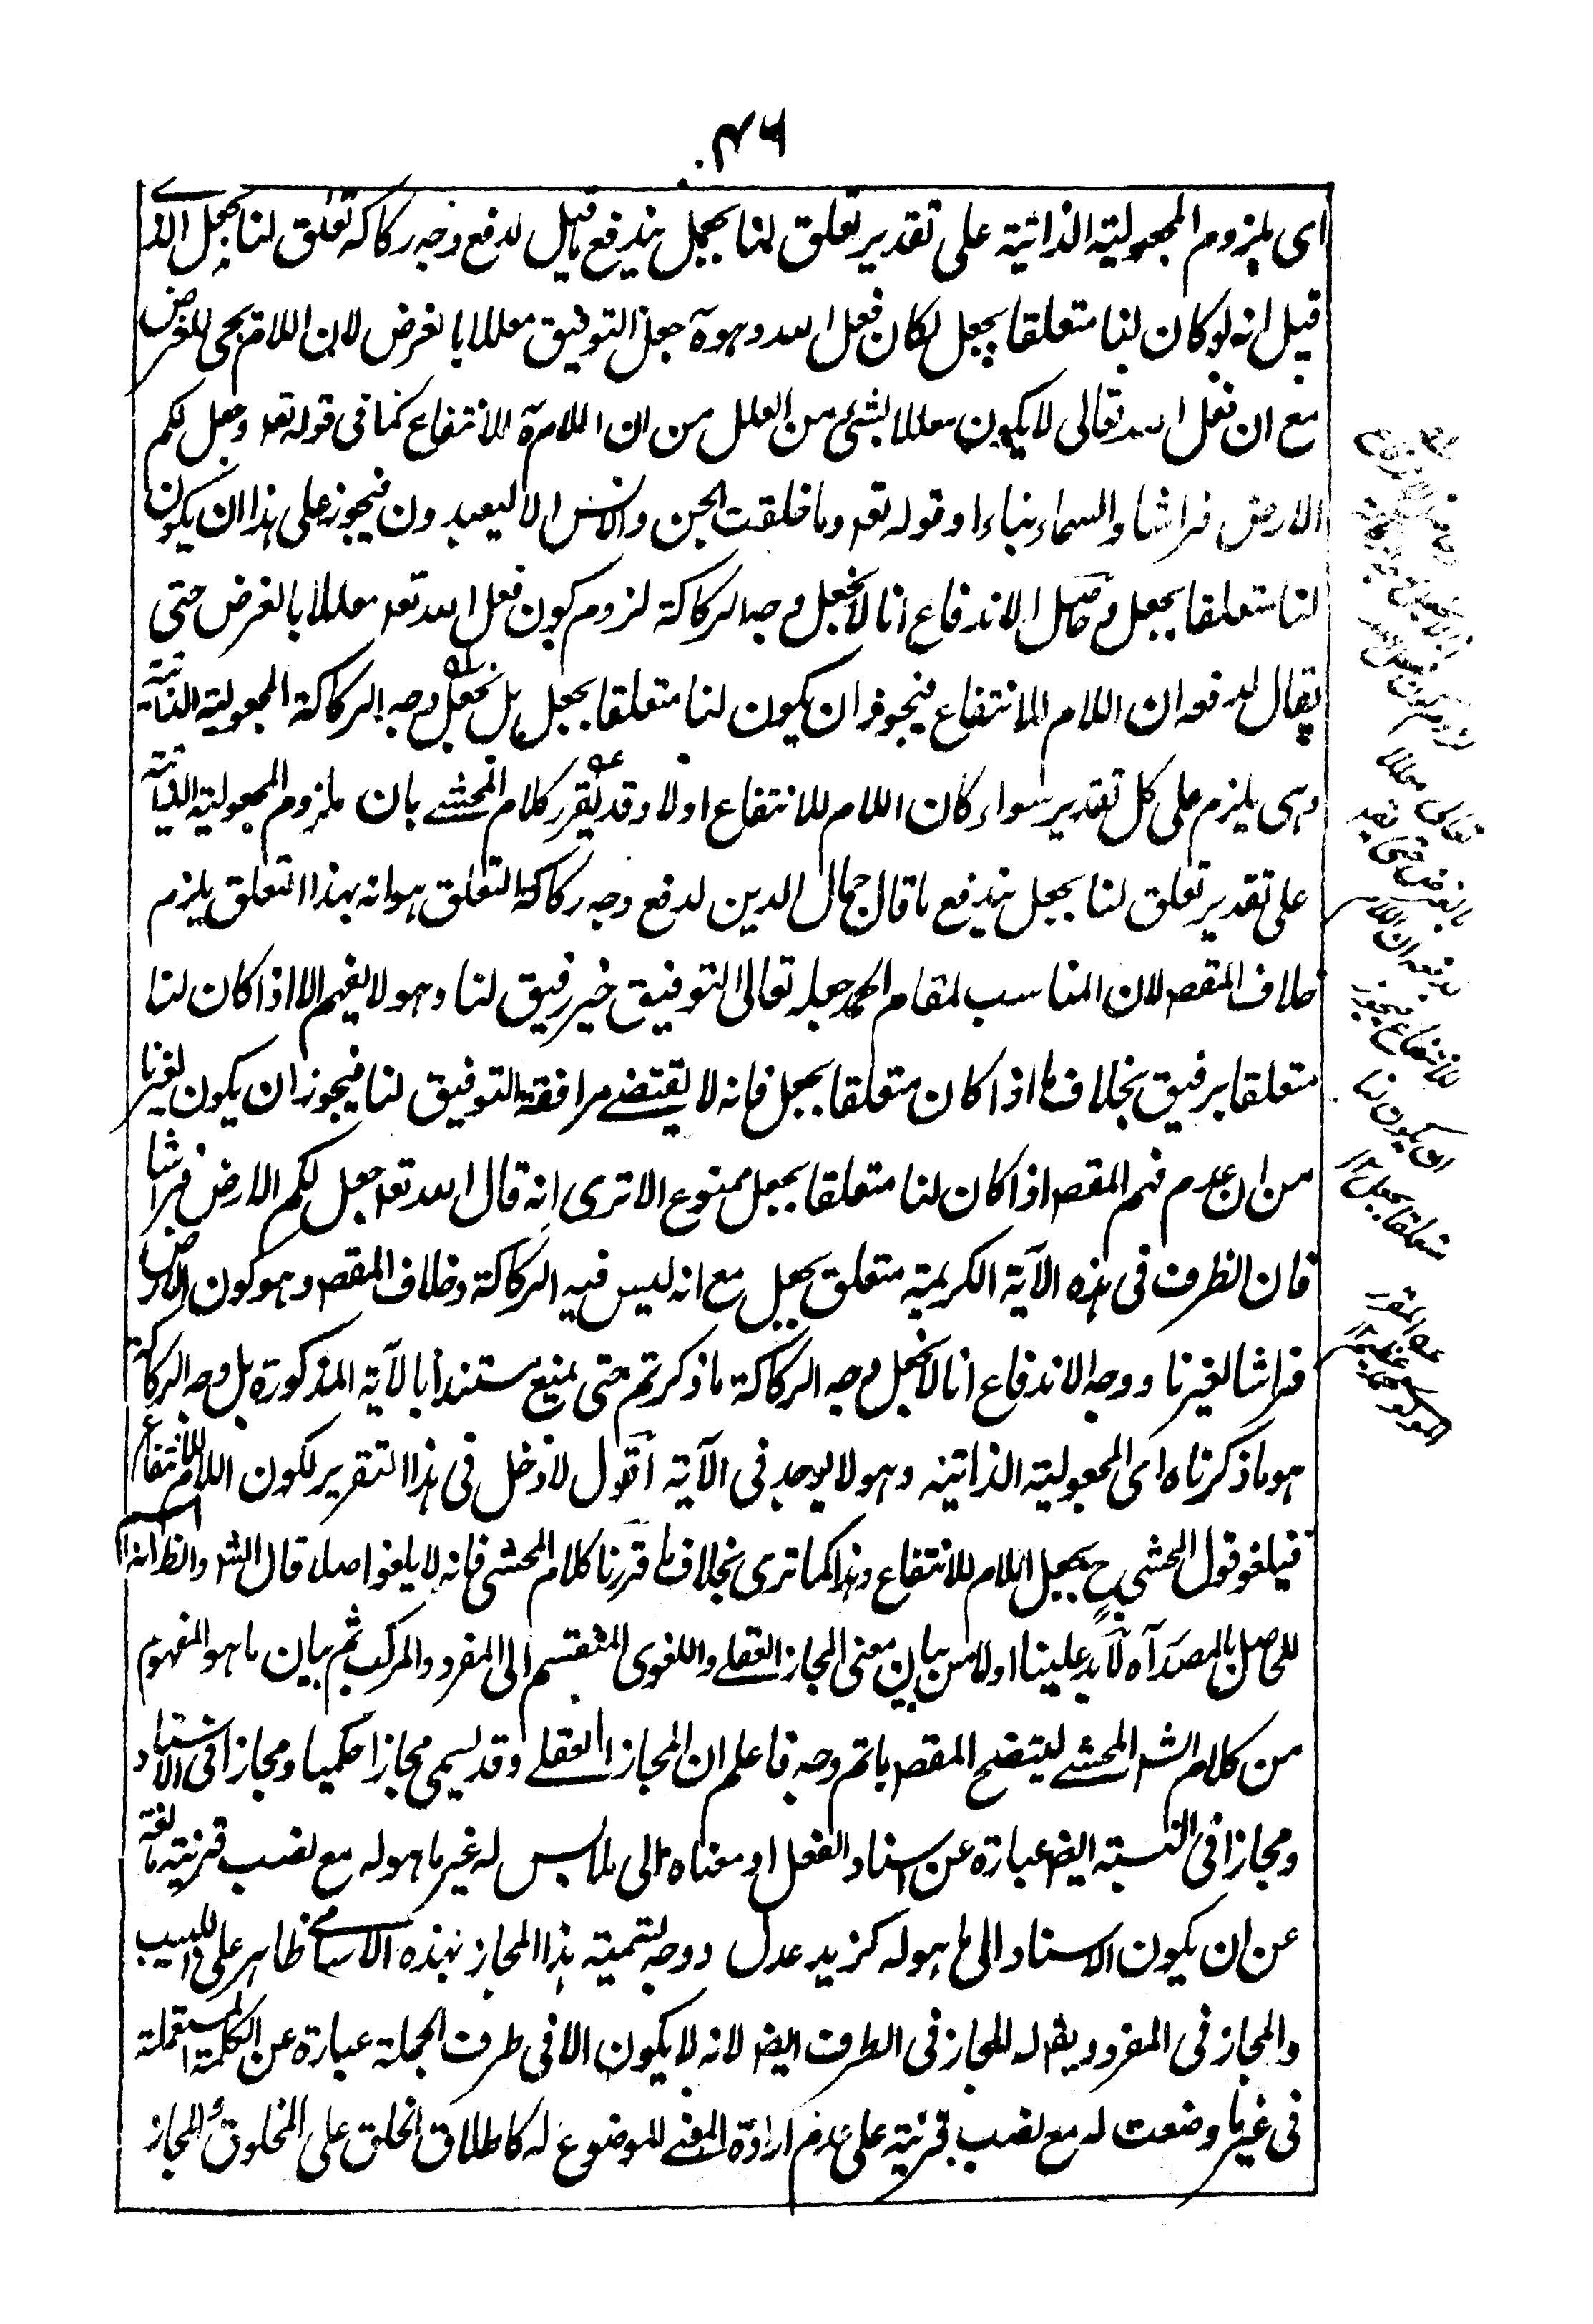 ٤٦
اى يلزوم المجعولية الذاتية على تقدير تعلق لنا بجعل يندفع ما قيل لدفع وجه ركاكة تعلق لنا بجعل الذے
قيل انه لو كان لنا متعلقا بجعل لكان فعل الله وهو آه جعل التوفيق معللا بالغرض لان اللام يجئ للغرض
مع ان فعل الله تعالى لا يكون معللا بشئ من العلل من ان اللام آه للانتفاع كما فى قوله تعه وجعل لكم
الارض فراشا والسماء بناء او قوله تعه وما خلقت الجن والانس الا ليعبدون فيجوز على هذا ان يكون
لنا متعلقا بجعل وحاصل الاندفاع انا لا نجعل وجه الركاكة لزوم كون فعل الله تعه معللا بالغرض حتى
يقال لدفعه ان اللام للانتفاع فيجوز ان يكون لنا متعلقا بجعل بل نجعل وجه الركاكة المجعولية الذاتية
وهى يلزم على كل تقدير سواء كان اللام للانتفاع اولا وقد يقرر كلام المحشے بان يلزوم المجعولية الذاتية
على تقدير تعلق لنا بجعل يندفع ما قال جمال الدين لدفع وجه ركاكة التعلق هو انه بهذا التعلق يلزم
خلاف المقصه لان المناسب لمقام الحمد جعله تعالى التوفيق خير رفيق لنا وهو لا يفهم الا اذا كان لنا
متعلقا برفيق بخلاف ما اذا كان متعلقا بجعل فانه لا يقتضے مرافقة التوفيق لنا فيجوز ان يكون لغيرنا
من ان عدم فهم المقصه اذا كان لنا متعلقا بجعل ممنوع الا ترى انه قال الله تعه جعل لكم الارض فراشا
فان الظرف فى هذه الآية الكريمة متعلق بجعل مع انه ليس فيه الركاكة وخلاف المقصه وهو كون الارض
فراشا لغيرنا ووجه الاندفاع انا لا نجعل وجه الركاكة ما ذكرتم حتى يمنع مستندا بالآية المذكورة بل وجه الركاكة
هو ما ذكرناه اى المجعولية الذاتية وهو لا يوجد فى الآية اقول لا دخل فى هذا التقرير لكون اللام للانتفاع
فيلغو قول المحشي ح بجعل اللام للانتفاع وهذا كما ترى بخلاف ما قررنا كلام المحشى فانه لا يلغو اصلا قال الشه والظ انه
للحاصل بالمصدر آه لا بد علينا اولا من بيان معنى المجاز العقلے واللغوى المنقسم الى المفرد والمركب ثم بيان ما هو المفهوم
من كلام الشه المحشے ليتضح المقصه باتم وجه فاعلم ان المجاز العقلے وقد يسمى مجازا حكميا ومجازا فى الاسناد
ومجازا فى النسبة ايضه عبارة عن اسناد الفعل او معناه الى ملابس له غير ما هو له مع نصب قرينة مانعة
عن ان يكون الاسناد الى ما هو له كزيد عدل ووجه تسمية هذا المجاز بهذه الاسامے ظاهر على اللبيب
والمجاز فى المفرد ويقه له المجاز فى الطرف ايضه لانه لا يكون الا فى طرف الجملة عبارة عن الكلمة المستعملة
فى غير ما وضعت له مع نصب قرينة على عدم ارادة المعنے الموضوع له كاطلاق الخلق على المخلوق والمجاز
لزوم كون فعل الله
تعالى معللا
بالغرض حتى يقه
لدفعه ان اللام
للانتفاع فيجوز
ان يكون لنا
متعلقا بجعل ١٢
عه المقرر